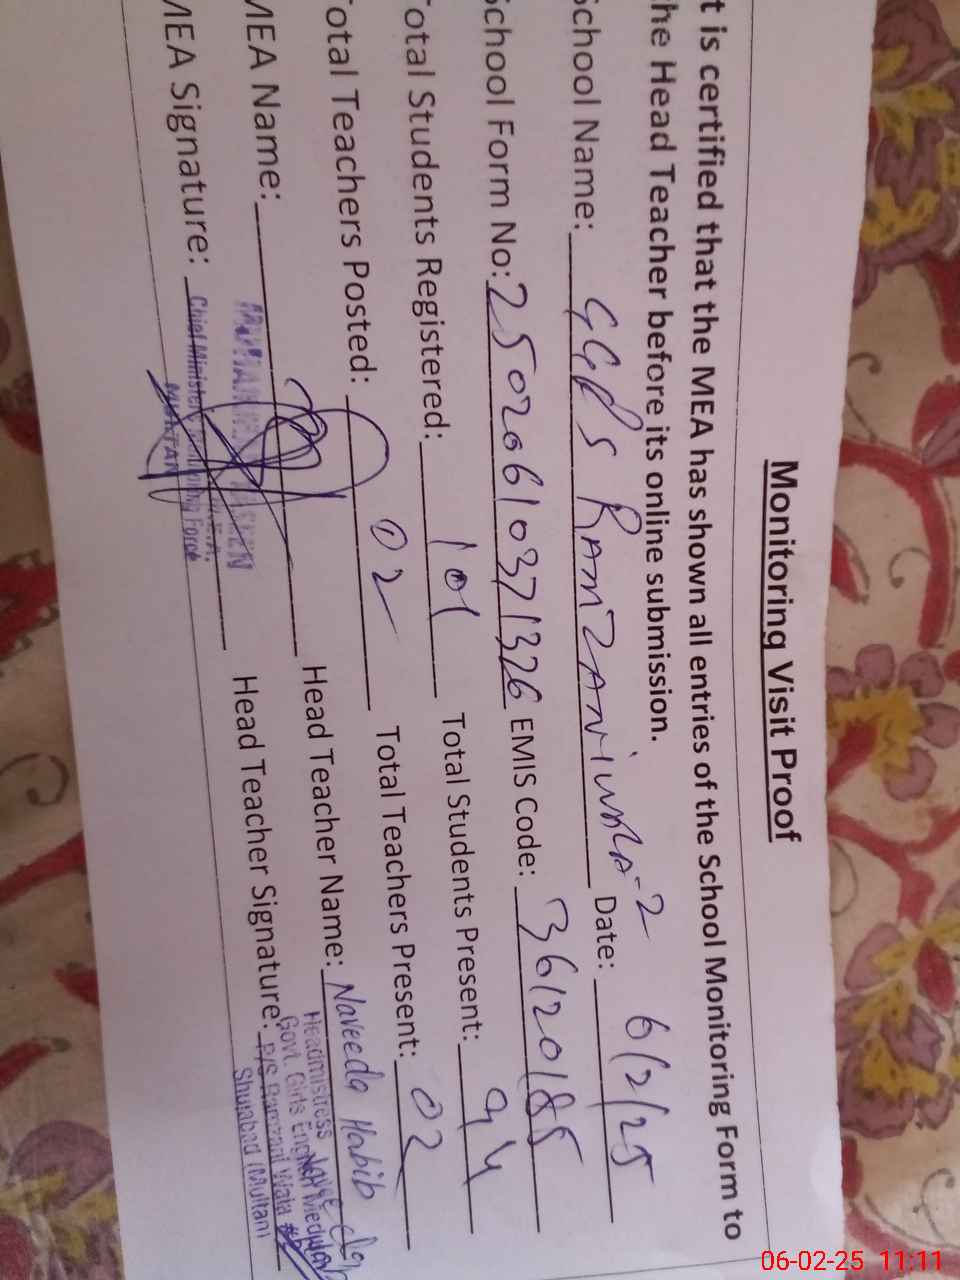 Monitoring Visit Proof
t is certified that the MEA has shown all entries of the School Monitoring Form to
he Head Teacher before its online submission.
School Name: GGPS RAMZAN Date: 6/2/25
School Form No: 2502061037 1326 EMIS Code: 36120185
Total Students Registered: 101 Total Students Present: 94
Total Teachers Posted: 02 Total Teachers Present: 02
MEA Name: Head Teacher Name: Naveeda Habib
MEA Signature: Head Teacher Signature:
Chief Minister Monitoring Force
MULTAN
Headmistress
Govt. Girls English Medium
P/S Ramzan Wala
Shujabad (Multan)
06-02-25 11:11